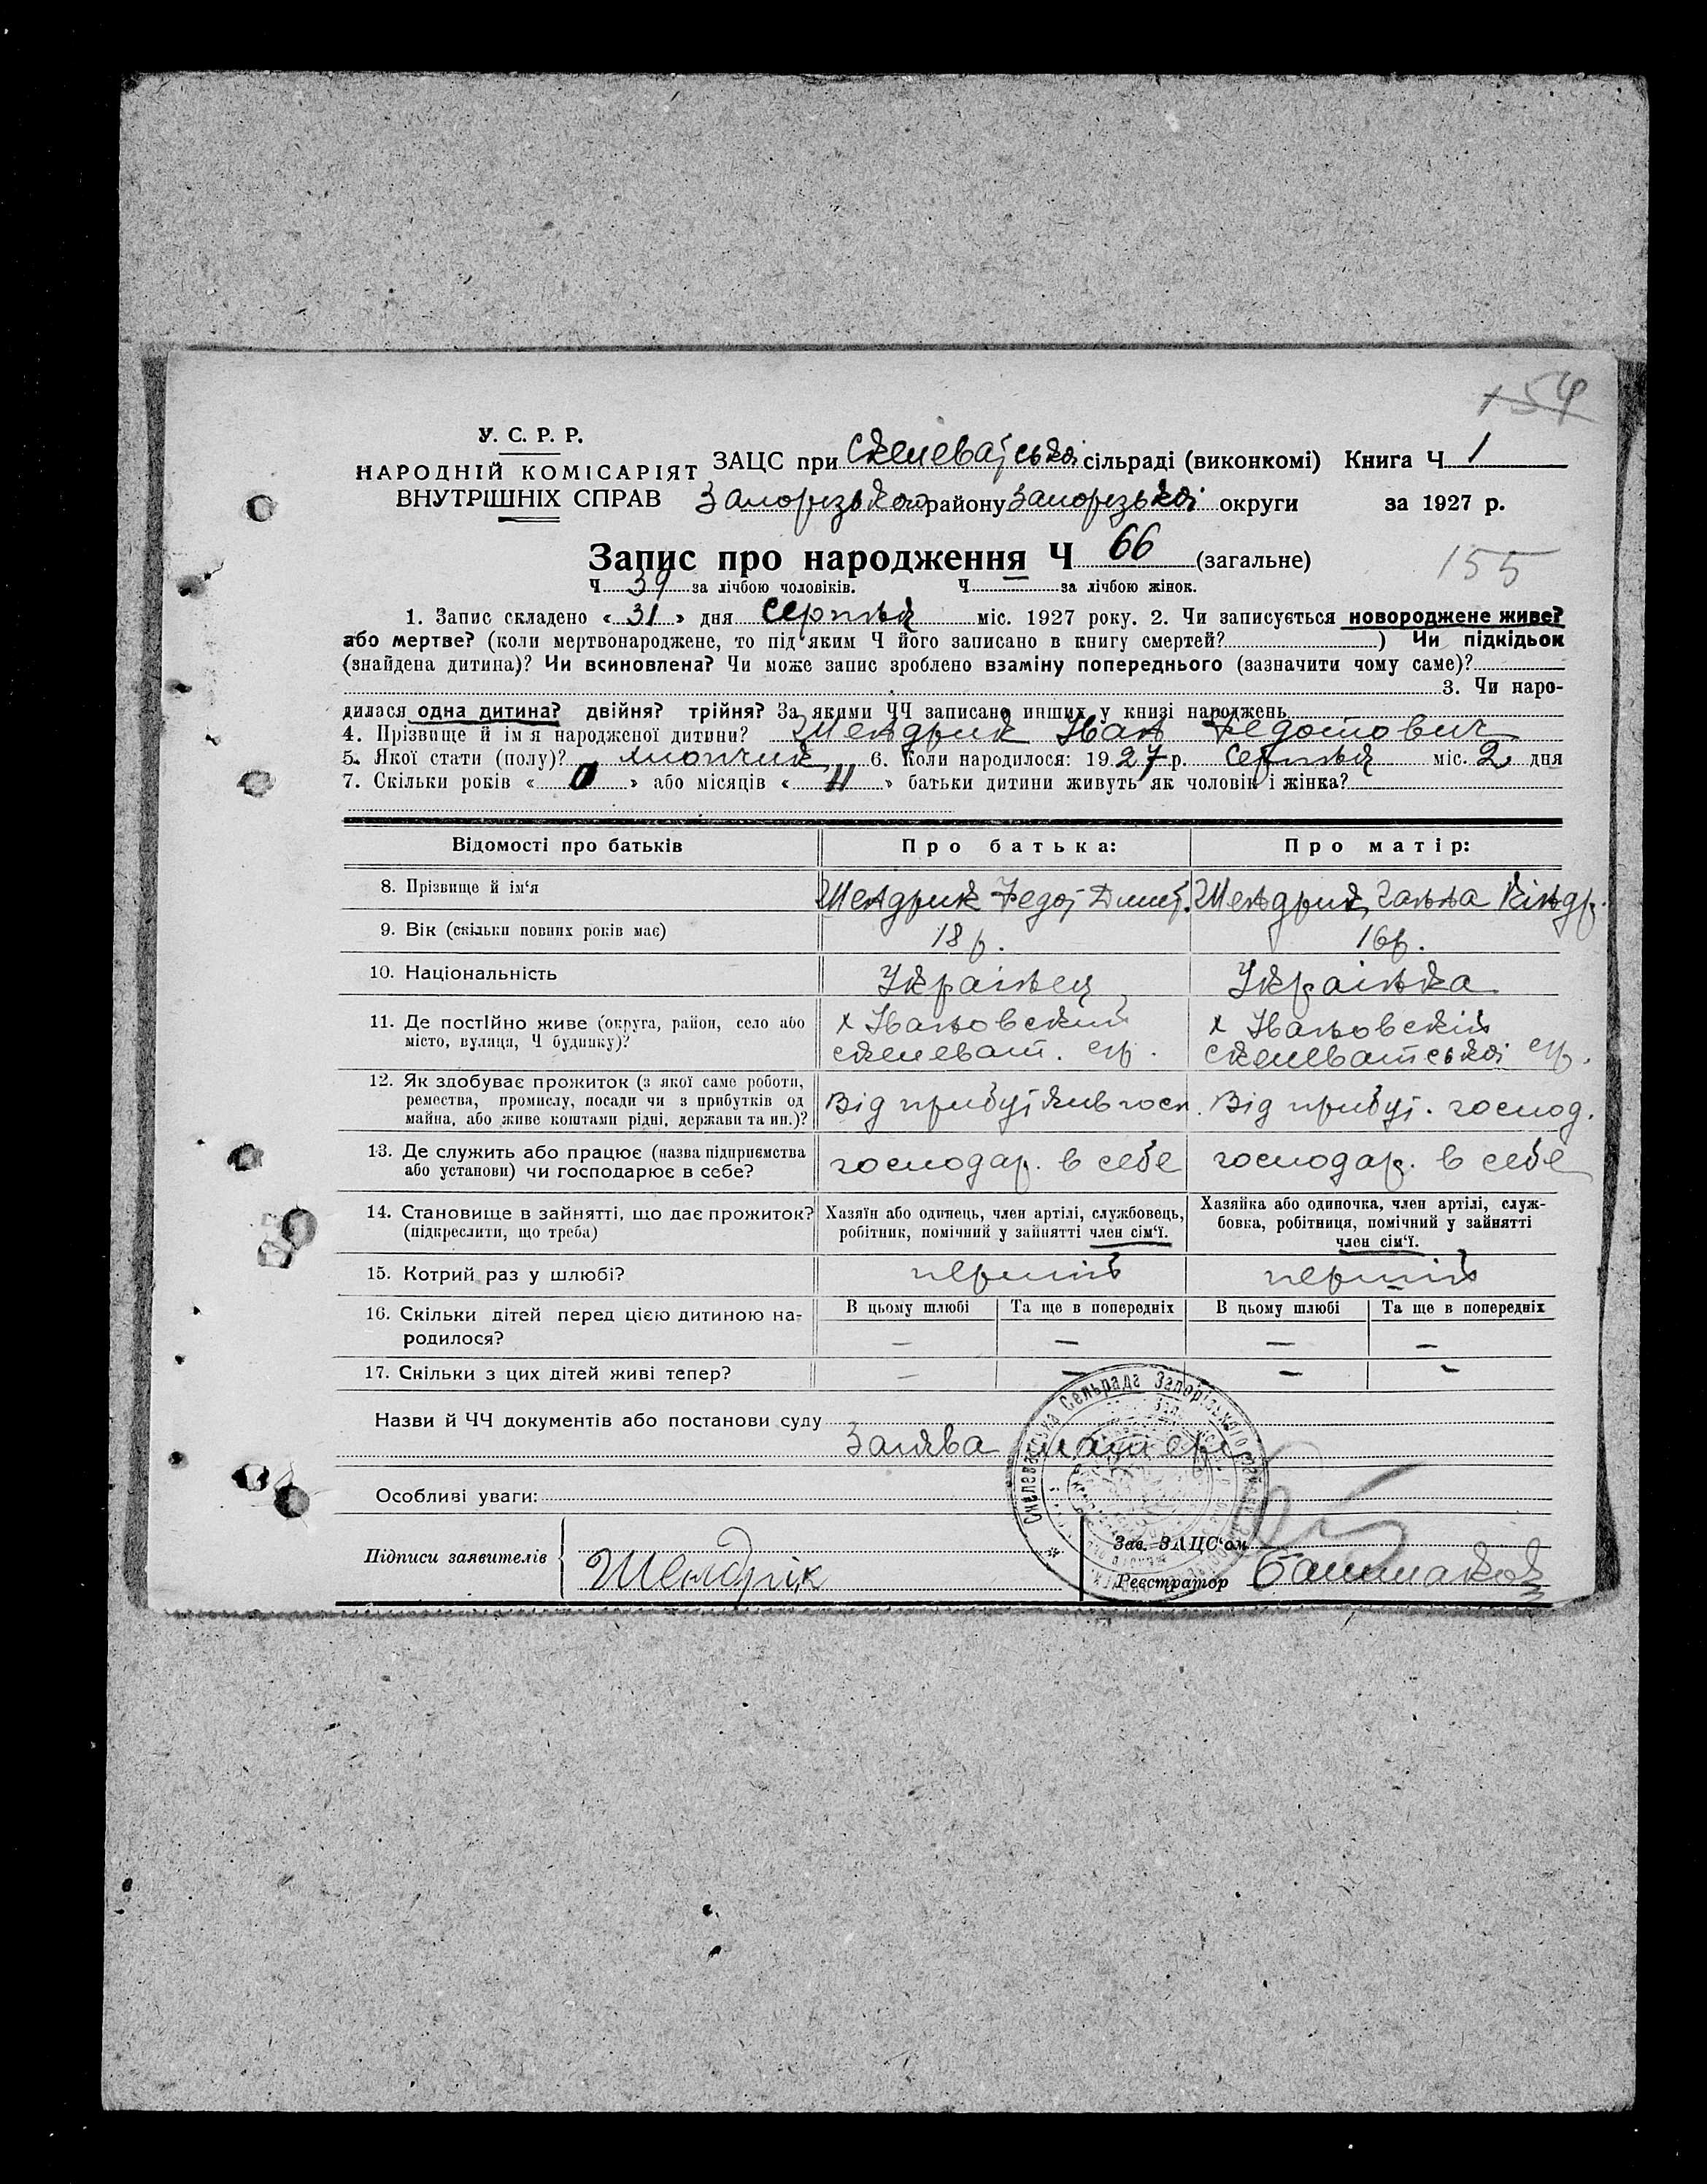 154
У. С. Р. Р.
НАРОДНІЙ КОМІСАРІЯТ
ВНУТРІШНІХ СПРАВ
ЗАЦС при Скелеватській сільраді (виконкомі) Книга Ч 1
Запорізького району Запорізької округи за 1927 р.
Запис про народження Ч 66 (загальне)
155
Ч 39 за лічбою чоловіків. Ч за лічбою жінок.
1. Запис складено « 31 » дня Серпня міс. 1927 року. 2. Чи записується новороджене живе?
або мертве? (коли мертвонароджене, то під яким Ч його записано в книгу смертей? ) Чи підкідьок
(знайдена дитина)? Чи всиновлена? Чи може запис зроблено взаміну попереднього (зазначити чому саме)?
3. Чи наро-
дилася одна дитина? двійня? трійня? За якими ЧЧ записано инших у книзі народжень
4. Прізвище й ім'я народженої дитини? Шендрик Іван Федотович
5. Якої стати (полу)? хлопчик 6. Коли народилося: 1927 р. серпня міс. 2 дня
7. Скільки років « 0 » або місяців « 11 » батьки дитини живуть як чоловік і жінка?
Відомості про батьків Про батька: Про матір:
8. Прізвище й ім'я Шендрик Федот Дмит. Шендрик Ганна Кіндр.
9. Вік (скільки повних років має) 18 р. 16 р.
10. Національність Українец Українка
11. Де постійно живе (округа, район, село або місто, вулиця, Ч будинку)? х Івановский х Івановскій
скелеват. с/р. скелеватської с/р.
12. Як здобуває прожиток (з якої саме роботи, ремества, промислу, посади чи з прибутків од майна, або живе коштами рідні, держави та ин.)? Від прибутків госп. Від прибут. господ.
13. Де служить або працює (назва підприємства або установи) чи господарює в себе? господар. в себе господар. в себе
14. Становище в зайнятті, що дає прожиток? (підкреслити, що треба) Хазяїн або одинець, член артілі, службовець, робітник, помічний у зайнятті член сім'ї. Хазяйка або одиночка, член артілі, служ-
бовка, робітниця, помічний у зайнятті
член сім'ї.
15. Котрий раз у шлюбі? перший перший
16. Скільки дітей перед цією дитиною на-
родилося? В цьому шлюбі Та ще в попередніх В цьому шлюбі Та ще в попередніх
— — — —
17. Скільки з цих дітей живі тепер? — — — —
Назви й ЧЧ документів або постанови суду
Заява матері
Особливі уваги:
Підписи заявителів Шендрік
Зав. ЗАЦС'ом
Реєстратор Башмаков
Скелеватська Сельрада Запорізького